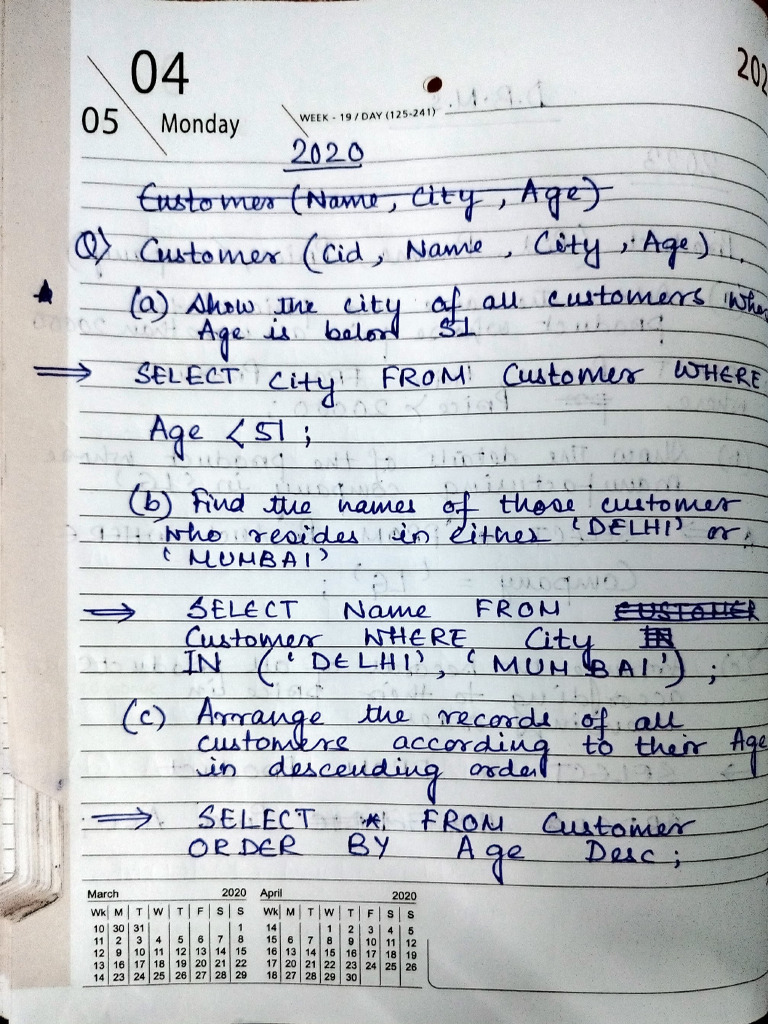 04
202
05 Monday WEEK - 19 / DAY (125-241)
2020
Customer (Name, City, Age)
Q) Customer (Cid, Name, City, Age)
(a) Show the city of all customers Wher
Age is below 51
⇒ SELECT City FROM Customer WHERE
Age < 51 ;
(b) Find the names of those customer
who resides in either 'DELHI' or
'MUMBAI'
⇒ SELECT Name FROM CUSTOMER
Customer WHERE City IN
IN ('DELHI', 'MUMBAI') ;
(c) Arrange the records of all
customers according to their Age
in descending order
⇒ SELECT * FROM Customer
ORDER BY Age Desc ;
March 2020 April 2020
Wk M T W T F S S Wk M T W T F S S
10 30 31 1 14 1 2 3 4 5
11 2 3 4 5 6 7 8 15 6 7 8 9 10 11 12
12 9 10 11 12 13 14 15 16 13 14 15 16 17 18 19
13 16 17 18 19 20 21 22 17 20 21 22 23 24 25 26
14 23 24 25 26 27 28 29 18 27 28 29 30